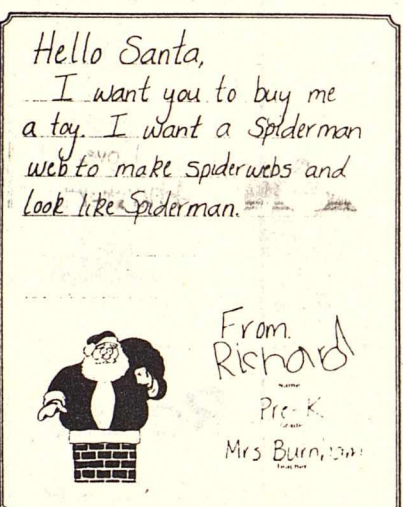 Hello Santa,
I want you to buy me
a toy. I want a Spiderman
web to make spiderwebs and
look like Spiderman.
From.
Richard
Name
Pre-K
Grade
Mrs
Teacher